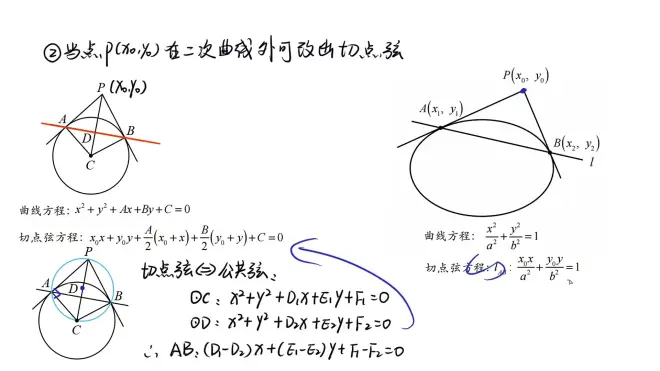 ②当点P(x₀,y₀)在二次曲线外可改出切点弦
P (x₀,y₀)
A
B
D
C
P(x₀, y₀)
A(x₁, y₁)
B(x₂, y₂)
l
曲线方程: x²+y²+Ax+By+C=0
切点弦方程: x₀x+y₀y+A/2(x₀+x)+B/2(y₀+y)+C=0
曲线方程: x²/a²+y²/b²=1
切点弦方程: l : x₀x/a²+y₀y/b²=1
P
A
D
B
C
切点弦⇔公共弦:
⊙C: x²+y²+D₁x+E₁y+F₁=0
⊙D: x²+y²+D₂x+E₂y+F₂=0
∴ AB: (D₁-D₂)x+(E₁-E₂)y+F₁-F₂=0